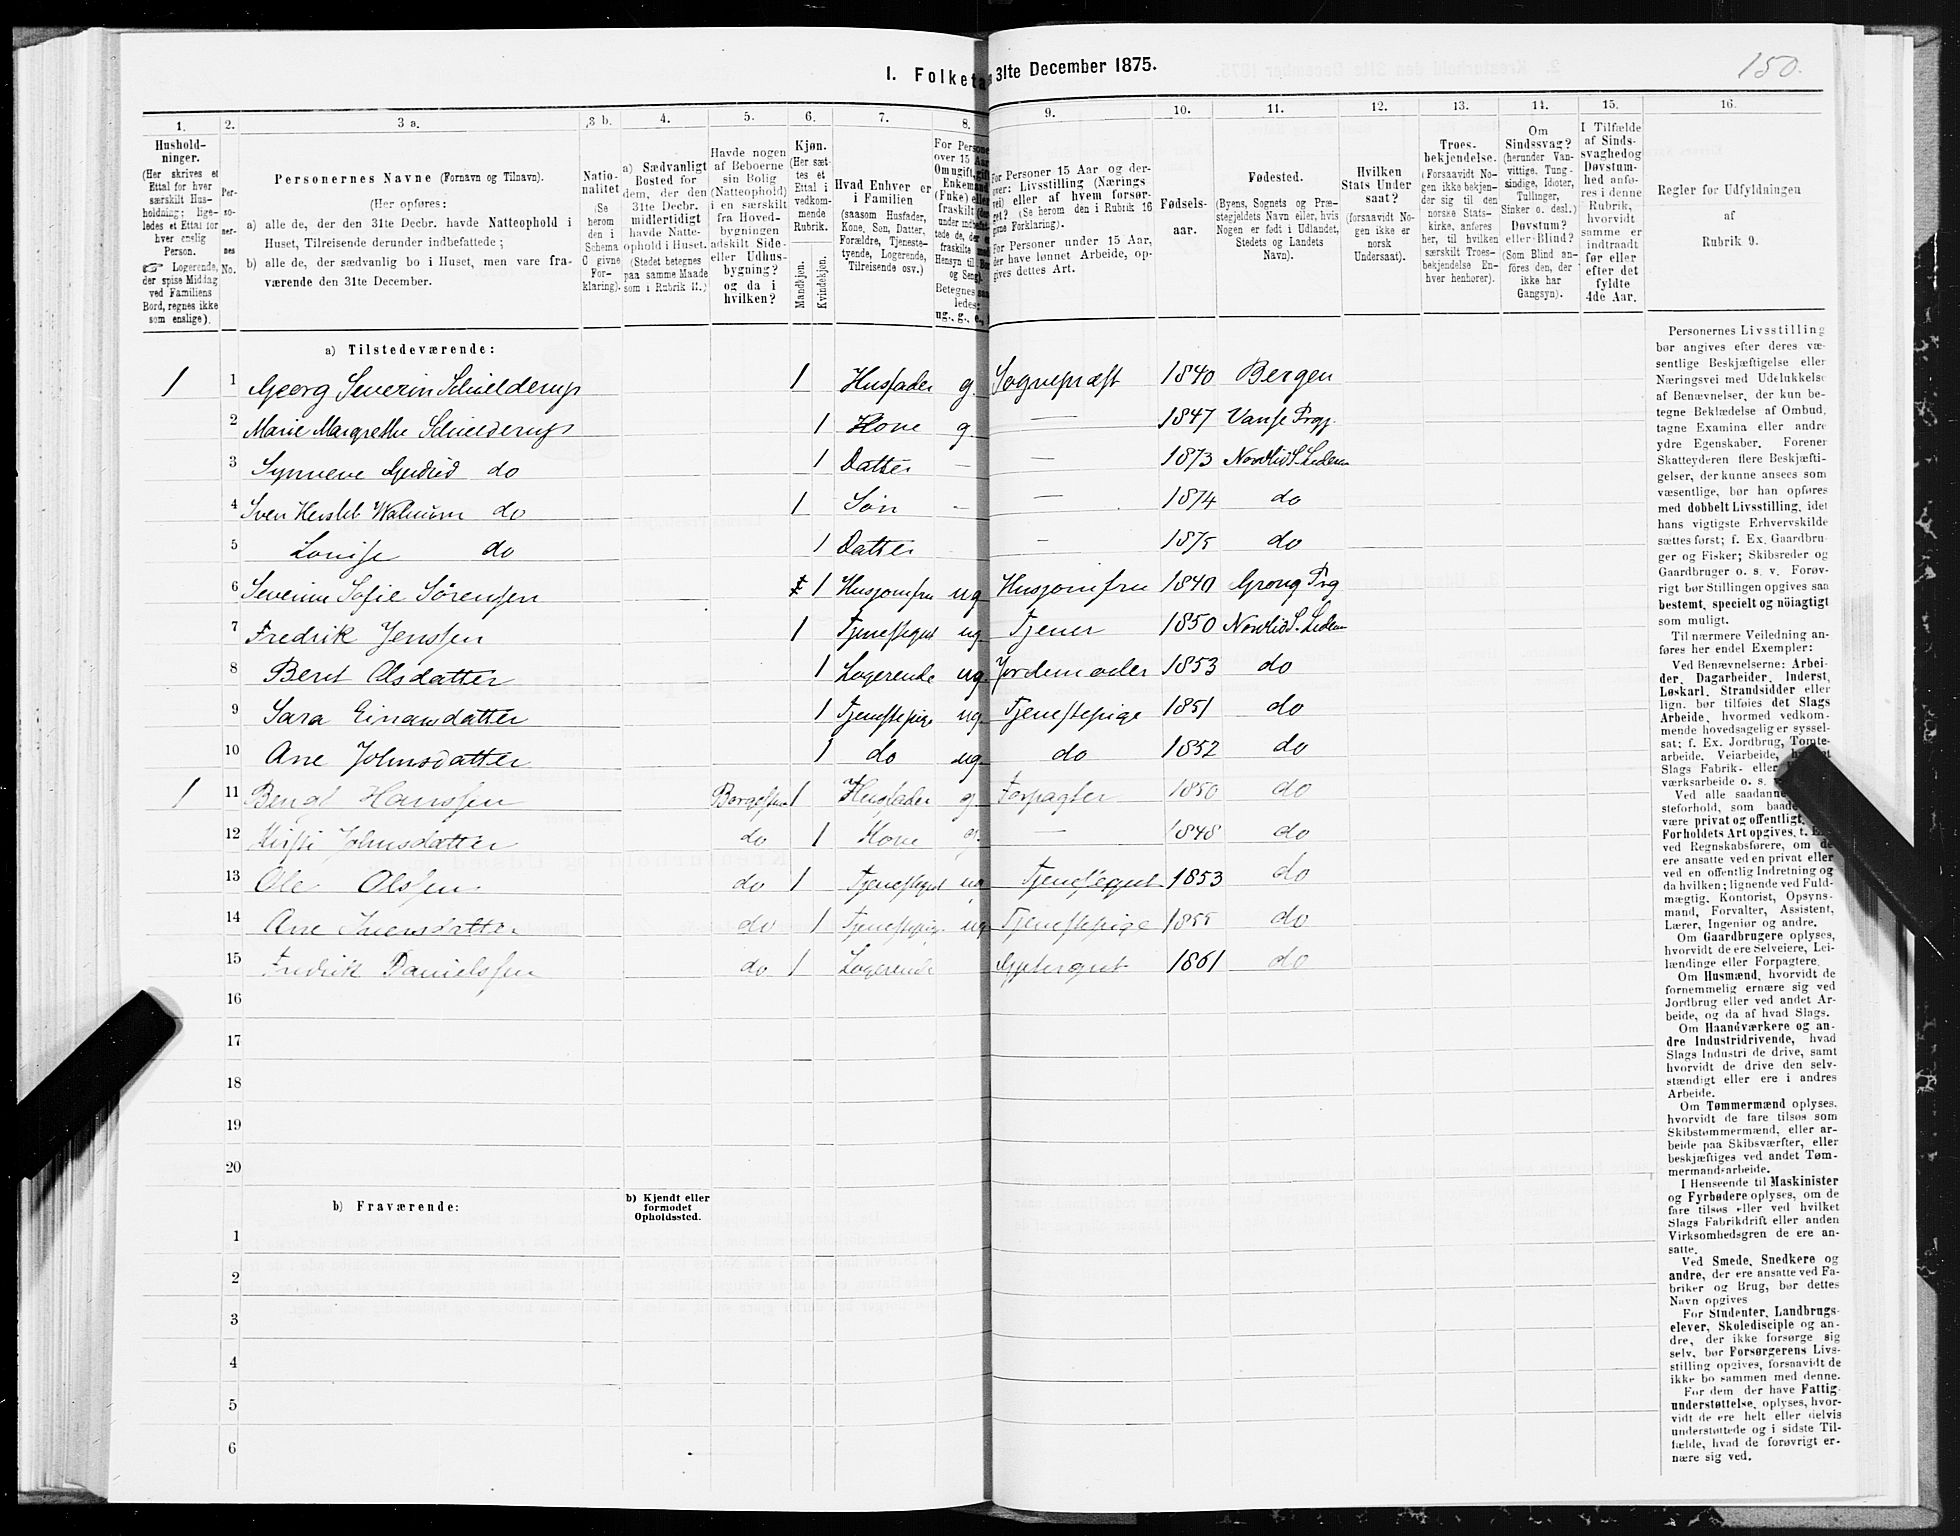 150.
I. Folketa 31te December 1875.
1. 2. 3 a. 3 b. 4. 5. 6. 7. 8. 9. 10. 11. 12. 13. 14. 15. 16.
Husholdninger.
(Her skrives et
Ettal for hver
særskilt Husholdning;
ligeledes et Ettal for
hver enslig
Person.
☞ Logerende,
der spise Middag
ved Familiens
Bord, regnes ikke
som enslige).
Personernes
No.
Personernes Navne (Fornavn og Tilnavn).
(Her opføres:
a) alle de, der den 31te Decbr. havde Natteophold i
Huset, Tilreisende derunder indbefattede;
b) alle de, der sædvanlig bo i Huset, men vare fraværende
den 31te December.
Nationalitet
(Se
herom
den i
Schema
C givne
Forklaring).
a) Sædvanligt
Bosted for
dem, der den
31te Decbr.
midlertidigt
havde Natteophold
i Huset.
(Stedet betegnes
paa samme Maade
som i Rubrik 11.)
Havde nogen
af Beboerne
sin Bolig
(Natteophold)
i en særskilt
fra Hovedbygningen
adskilt Side-
eller Udhusbygning?
og da i
hvilken?
Kjøn.
(Her sættes
et
Ettal i
vedkommende
Rubrik.
Mandkjøn.
Kvindekjøn.
Hvad Enhver er
i Familien
(saasom Husfader,
Kone, Søn, Datter,
Forældre, Tjenestetyende,
Logerende,
Tilreisende osv.)
For Persone
over 15 Aar
Om ugift, gift
Enkemand
(Enke) eller
fraskilt
ug., g., e.,
For Personer 15 Aar og derover:
Livsstilling (Næringsvei)
eller af hvem forsørget?
(Se herom den i Rubrik 16
givne Forklaring).
For Personer under 15 Aar,
der have lønnet Arbeide, opgives
dettes Art.
Fødselsaar.
Fødested.
(Byens, Sognets og Præstegjeldets
Navn eller, hvis
Nogen er født i Udlandet,
Stedets og Landets
Navn).
Hvilken
Stats Undersaat?
(forsaavidt Nogen
ikke er
norsk
Undersaat).
Troesbekjendelse.
(Forsaavidt Nogen
ikke bekjender
sig til den
norske Statskirke,
anføres
her, til hvilken
særskilt Troesbekjendelse
Enhver
henhører).
Om
Sindssvag?
(herunder Vanvittige,
Tungsindige,
Idioter,
Tullinger,
Sinker o. desl.)
Døvstum?
eller Blind?
(Som Blind anføres
den, der
ikke har
Gangsyn).
I Tilfælde
af Sindssvaghed og
Døvstumhed
anføres
i denne
Rubrik,
hvorvidt
samme er
indtraadt
før eller
efter det
fyldte
4de Aar.
Regler for Udfyldningen
af
Rubrik 9.
a) Tilstedeværende:
1 1 Georg Severin Schielderup 1 Husfader g. Sognepræst 1840 Bergen
2 Marie Margrethe Schielderup 1 Kone g. — 1847 Vanse Prgj.
3 Synneve Gudrid do 1 Datter — — 1873 Nordlid S. Lierne
4 Sven Hersleb Walnum do 1 Søn — — 1874 do
5 Louise do 1 Datter — 1875 do
6 Severine Sofie Sørensen 1 Husjomfru ug. Husjomfru 1840 Grong Prg
7 Fredrik Jenssen 1 Tjenestegut ug. Tjener 1850 Nordlid S. Lierne
8 Beret Olsdatter 1 Logerende ug. Jordemoder 1853 do
9 Sara Einarsdatter 1 Tjenestepige ug. Tjenestepige 1851 do
10 Ane Johnsdatter 1 do ug. do 1852 do
1 11 Bengt Hanssen Borgestuen 1 Husfader g. Forpagter 1850 do
12 Kirsti Johnsdatter do 1 Kone g. — 1848 do
13 Ole Olssen do 1 Tjenestegut ug Tjenestegut 1853 do
14 Ane Svensdatter do 1 Tjenestepige ug. Tjenestepige 1855 do
15 Fredrik Danielssen do 1 Logerende Gjetergut 1861 do
16
17
18
19
20
b) Fraværende:
b) Kjendt eller
formodet
Opholdssted.
1
2
3
4
5
6
Personernes Livsstilling
bør angives efter deres væsentlige
Beskjæftigelse eller
Næringsvei med Udelukkelse
af Benævnelser, der kun betegne
Beklædelse af Ombud,
tagne Examina eller andre
ydre Egenskaber. Forener
Skatteyderen flere Beskjæftigelser,
der kunne ansees som
væsentlige, bør han opføres
med dobbelt Livsstilling, idet
hans vigtigste Erhvervskilde
sættes først; f. Ex. Gaardbruger
og Fisker; Skibsreder og
Gaardbruger o. s. v. Forøvrigt
bør Stillingen opgives saa
bestemt, specielt og nöiagtigt
som muligt.
Til nærmere Veiledning anføres
her endel Exempler:
Ved Benævnelserne: Arbeider,
Dagarbeider, Inderst,
Løskarl, Strandsidder eller
lign. bør tilføies det Slags
Arbeide, hvormed vedkommende
hovedsagelig er sysselsat;
f. Ex. Jordbrug, Tomtearbeide,
Veiarbeide,
Slags Fabrik- eller
værksarbeide o. s.
Ved alle saadanne
være privat og offentligt,
Forholdets Art opgives,
ved Regnskabsførere, om de
ere ansatte ved en privat eller
ved en offentlig Indretning og
da hvilken; lignende ved Fuldmægtig,
Kontorist, Opsynsmand,
Forvalter, Assistent,
Lærer, Ingeniør og andre.
Om Gaardbrugere oplyses,
hvorvidt de ere Selveiere, Leilændinge
eller Forpagtere.
Om Husmænd, hvorvidt de
fornemmelig ernære sig ved
Jordbrug eller ved andet Arbeide,
og da af hvad Slags.
Om Haandværkere og andre
Industridrivende, hvad
Slags Industri de drive, samt
hvorvidt de drive den selvstændigt
eller ere i andres
Arbeide.
Om Tømmermænd oplyses,
hvorvidt de fare tilsøs som
Skibstømmermænd, eller arbeide
paa Skibsværfter, eller
beskjæftiges ved andet Tømmermandsarbeide.
I Henseende til Maskinister
og Fyrbødere oplyses, om de
fare tilsøs eller ved hvilket
Slags Fabrikdrift eller anden
Virksomhedsgren de ere ansatte.
Ved Smede, Snedkere og
andre, der ere ansatte ved Fabriker
og Brug, bør dettes
Navn opgives
For Studenter, Landbrugselever,
Skoledisciple og andre,
der ikke forsørge sig
selv, bør Forsørgerens Livsstilling
opgives, forsaavidt de
ikke bo sammen med denne.
For dem der have Fattigunderstøttelse,
oplyses, hvorvidt
de ere helt eller delvis
understøttede og i sidste Tilfælde,
hvad de forøvrigt ernære
sig ved.